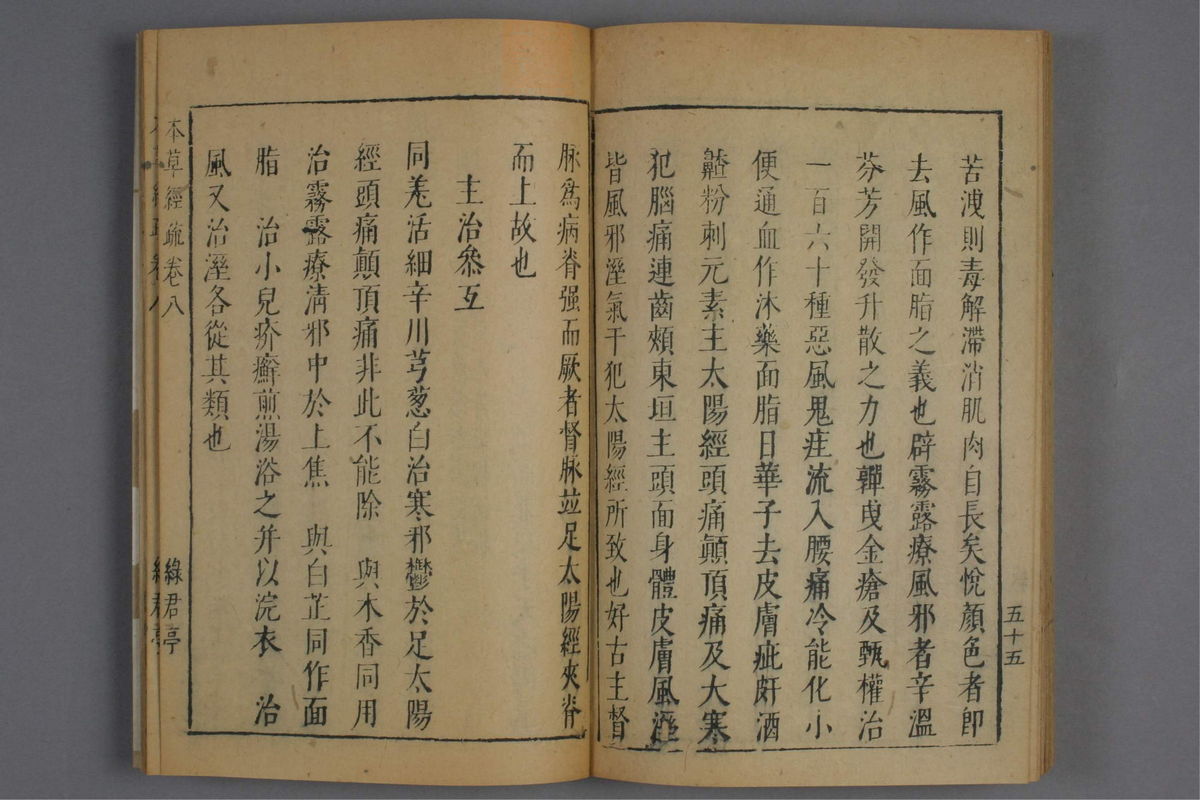 五十五
苦洩則毒解滯消肌肉自長矣悅顏色者卽
去風作面脂之義也辟霧露療風邪者辛溫
芬芳開發升散之力也鼾曳金瘡及甄權治
一百六十種惡風鬼疰流入腰痛冷能化小
便通血作沐藥面脂日華子去皮膚疵皯酒
齄粉刺元素主太陽經頭痛顚頂痛及大寒
犯腦痛連齒頰東垣主頭面身體皮膚風溼
皆風邪溼氣干犯太陽經所致也好古主督
脉爲病脊强而厥者督脉並足太陽經夾脊
而上故也
主治叅互
同羌活細辛川芎葱白治寒邪鬱於足太陽
經頭痛顚頂痛非此不能除　與木香同用
治霧露療淸邪中於上焦　與白芷同作面
脂　治小兒疥癬煎湯浴之并以浣衣　治
風又治溼各從其類也
本草經疏卷八　綠君亭